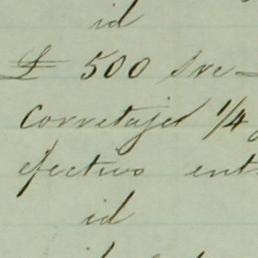 id
£ 500 sre
Corretaje 1/4
efectivo ent
id